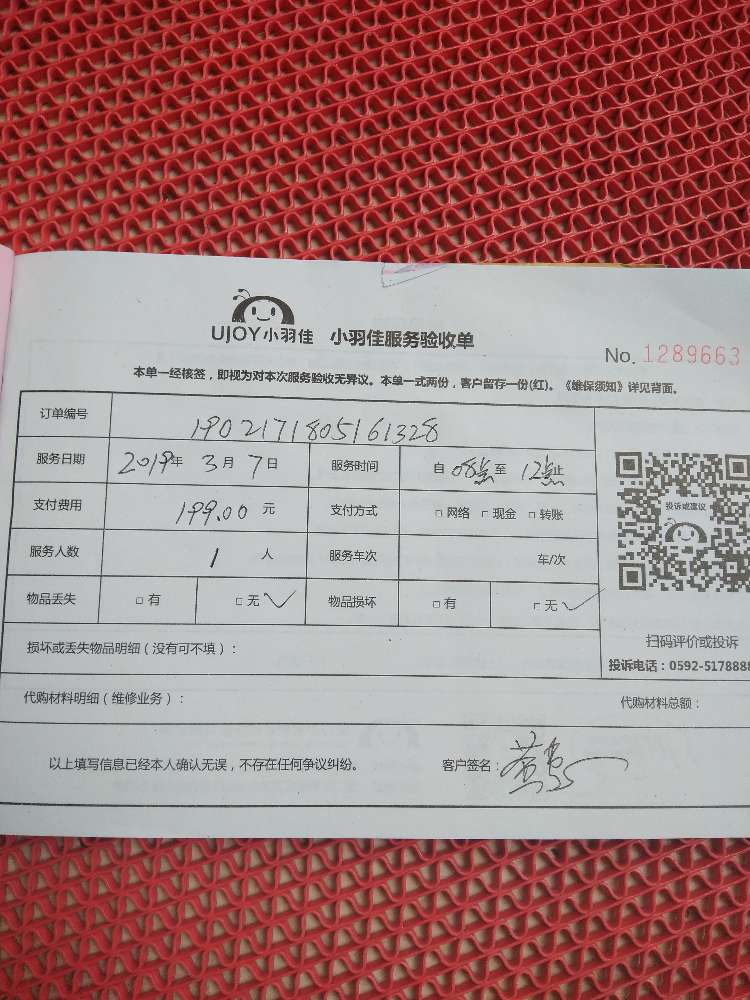 UJOY小羽佳 小羽佳服务验收单
No. 1289663
本单一经核签，即视为对本次服务验收无异议。本单一式两份，客户留存一份(红)。《维保须知》详见背面。
订单编号 1902171805161328
服务日期 2019年 3月 7日 服务时间 自 08点至 12点止
投诉或建议
支付费用 199.00 元 支付方式 □ 网络 □ 现金 □ 转账
服务人数 1 人 服务车次 车/次
物品丢失 □ 有 □ 无 ✓ 物品损坏 □ 有 □ 无 ✓
扫码评价或投诉
损坏或丢失物品明细（没有可不填）：
投诉电话：0592-5178888
代购材料明细（维修业务）： 代购材料总额：
以上填写信息已经本人确认无误，不存在任何争议纠纷。 客户签名：